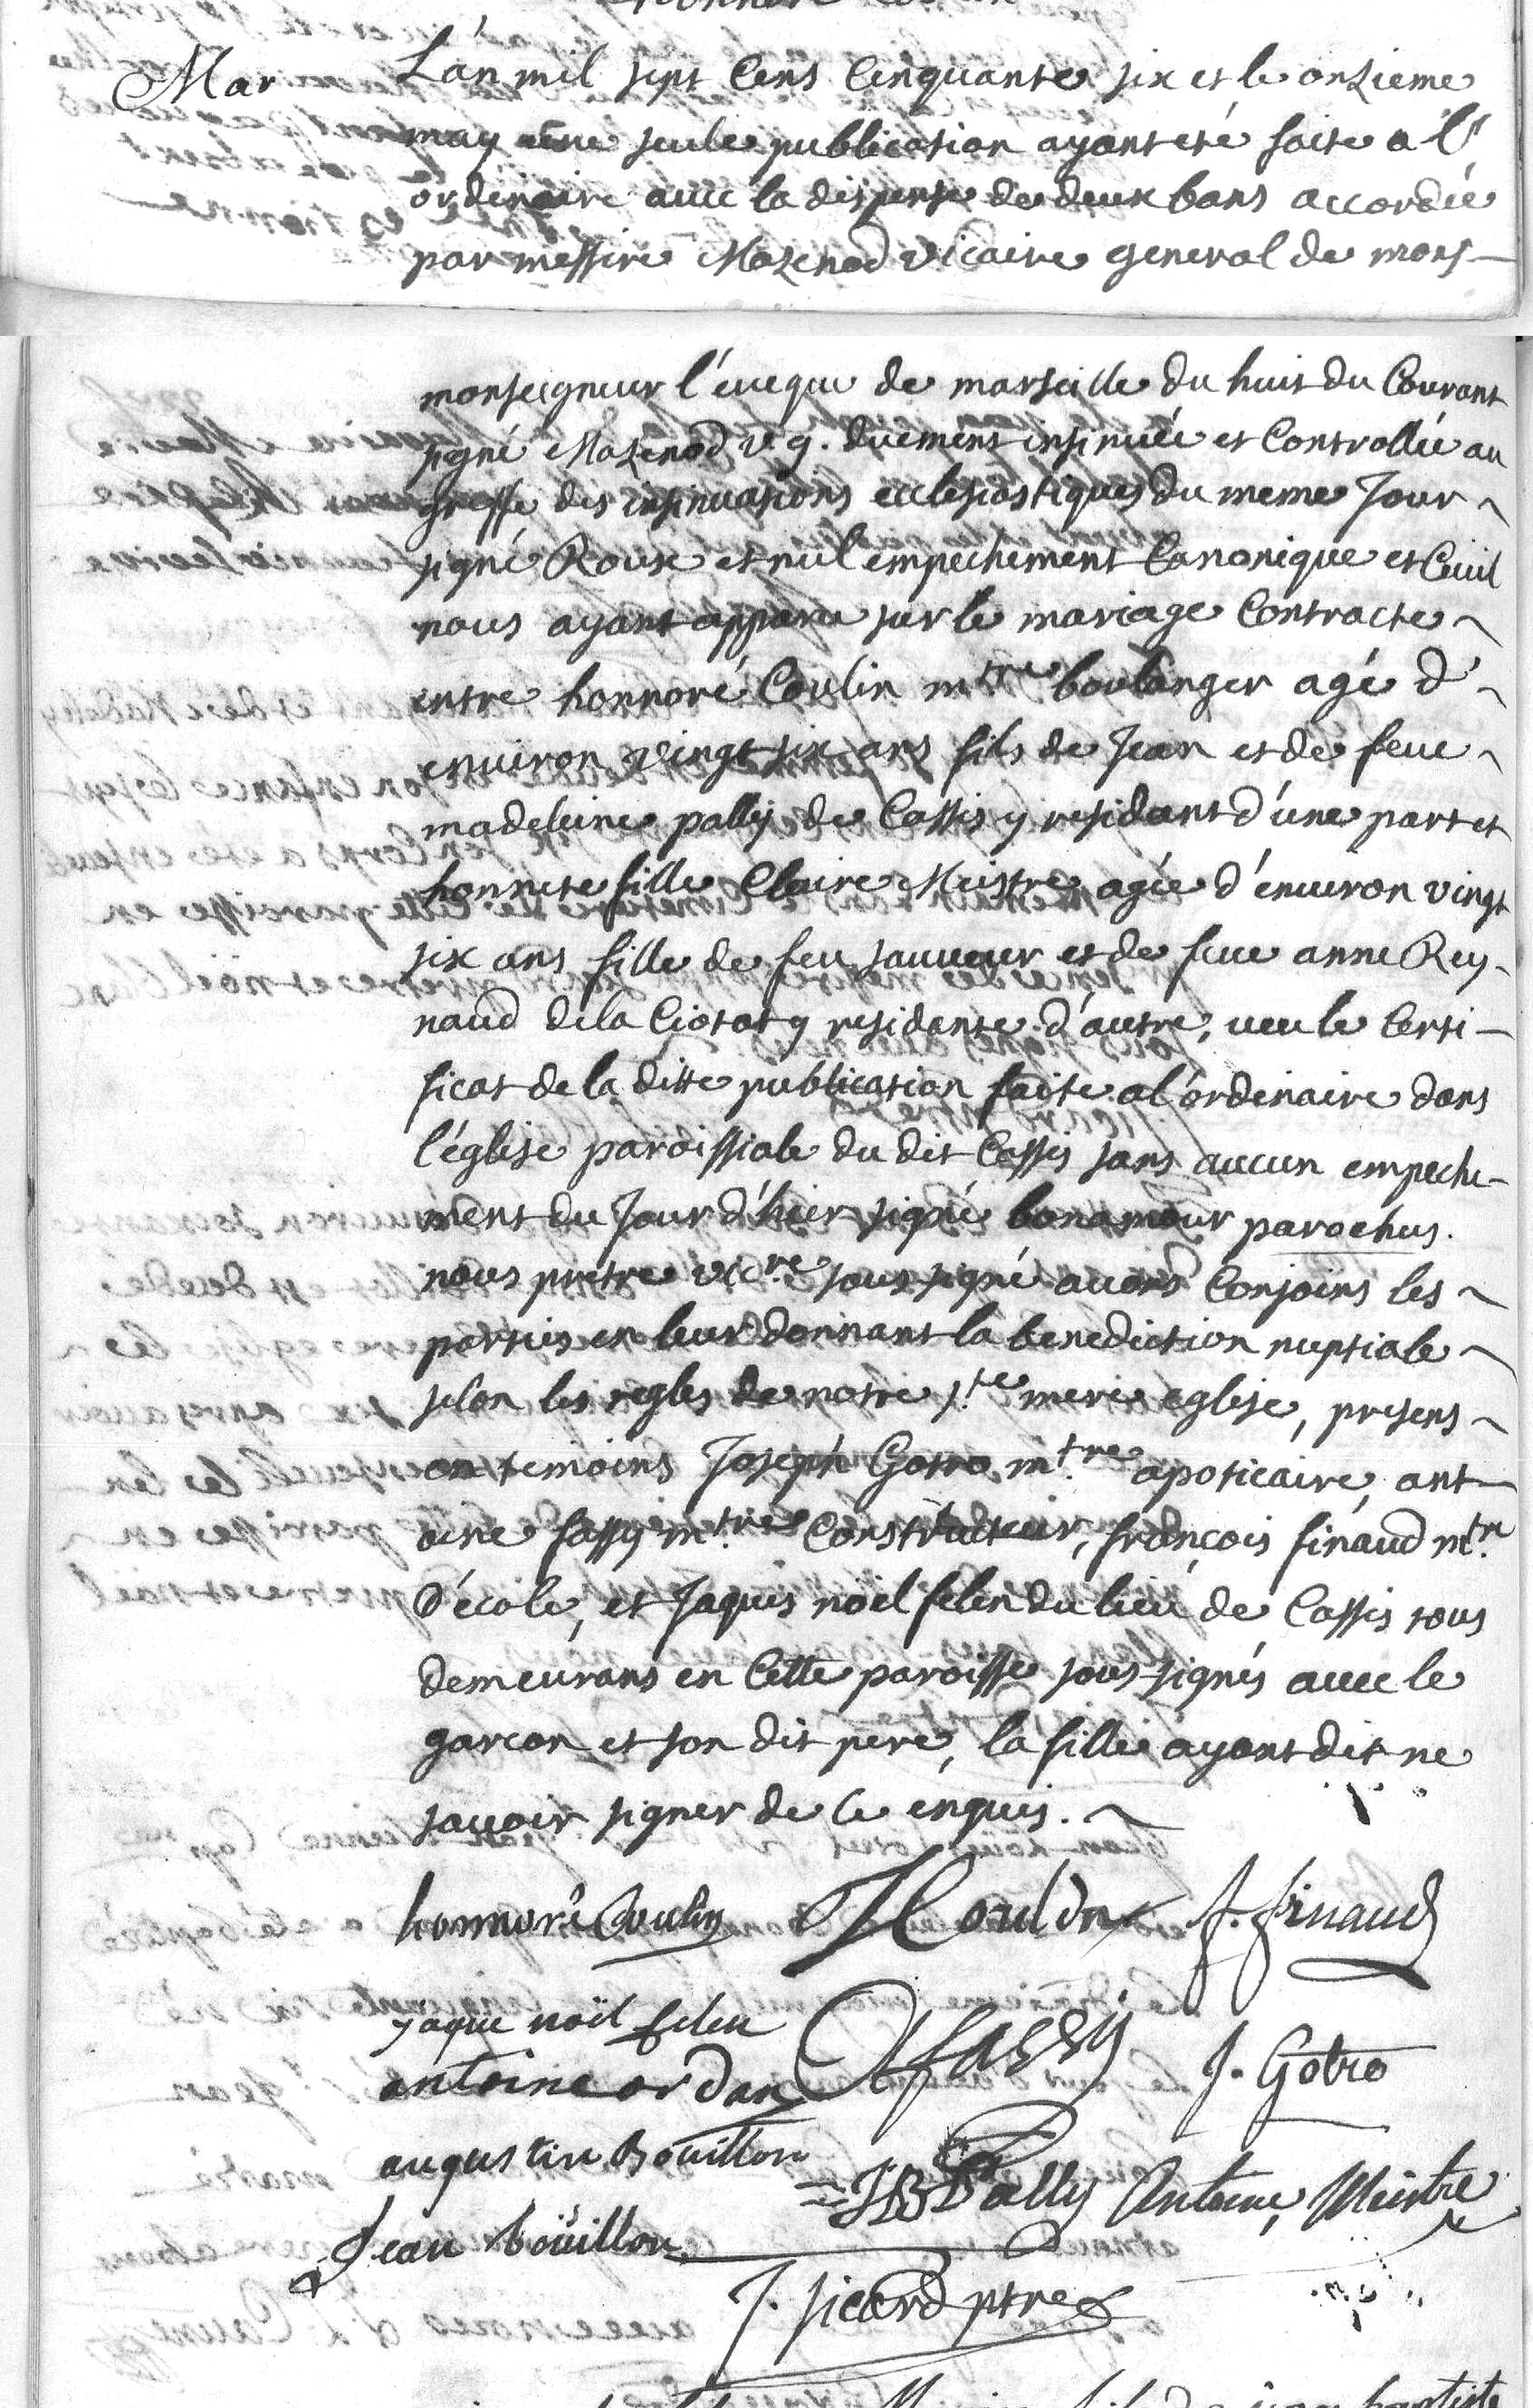 Mar
L'an mil sept Cens Cinquante six et le onzieme
may une seule publication ayant eté faite a l'
ordenaire avec la dispense de deux bans accordée
par messire Mazenod vicaire general de mons-
monseigneur l'eveque de marseille du huit du Courant
signé Mazenod v. g. duement insinuée et Controllée au
greffe des insinuations ecclesiastiques du meme Jour
signé Roux et nul empechement Canonique et Civil
nous ayant apparu sur le mariage Contracte
entre honnoré Coulin mtre boulanger agé d'
environ vingt six ans fils de Jean et de feue
madeleine pally de Cassis y residant d'une part et
honnete fille Claire Meistre agée d'environ vingt
six ans fille de feu sauveur et de feue anne Rey-
naud de la Ciotat y residante d'autre, veu le Certi-
ficat de la ditte publication faite a l'ordenaire dans
l'église paroissiale du dit Cassis sans aucun empeche-
ment du Jour d'hier signé bonamour parochus.
nous pretre vicre sous signé avons Conjoins les
parties en leur donnant la benediction nuptiale
selon les regles de notre ste mere eglise, presens
temoins Joseph Gotro mtre apoticaire, ant-
oine fassy mtre Constructeur, françois finaud mtre
d'école, et Jaques noël felen du lieu de Cassis tous
demeurans en Cette paroisse sous signés avec le
garcon et son dit pere, la fille ayant dit ne
savoir signer de Ce enquis.
honnoré Coulin J Coulin f. finaud
jaque noël felen A fassy J. Gotro
antoine ordan
augustin Bouillon JB Pally Antoine Meistre
Jean boüillon
J. sicard ptre